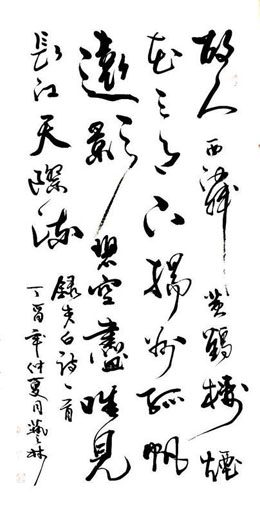 故人西辭黄鶴樓煙
花三月下揚州孤帆
遠影碧空盡唯見
長江天際流
錄李白詩一首
丁酉年仲夏月藝林